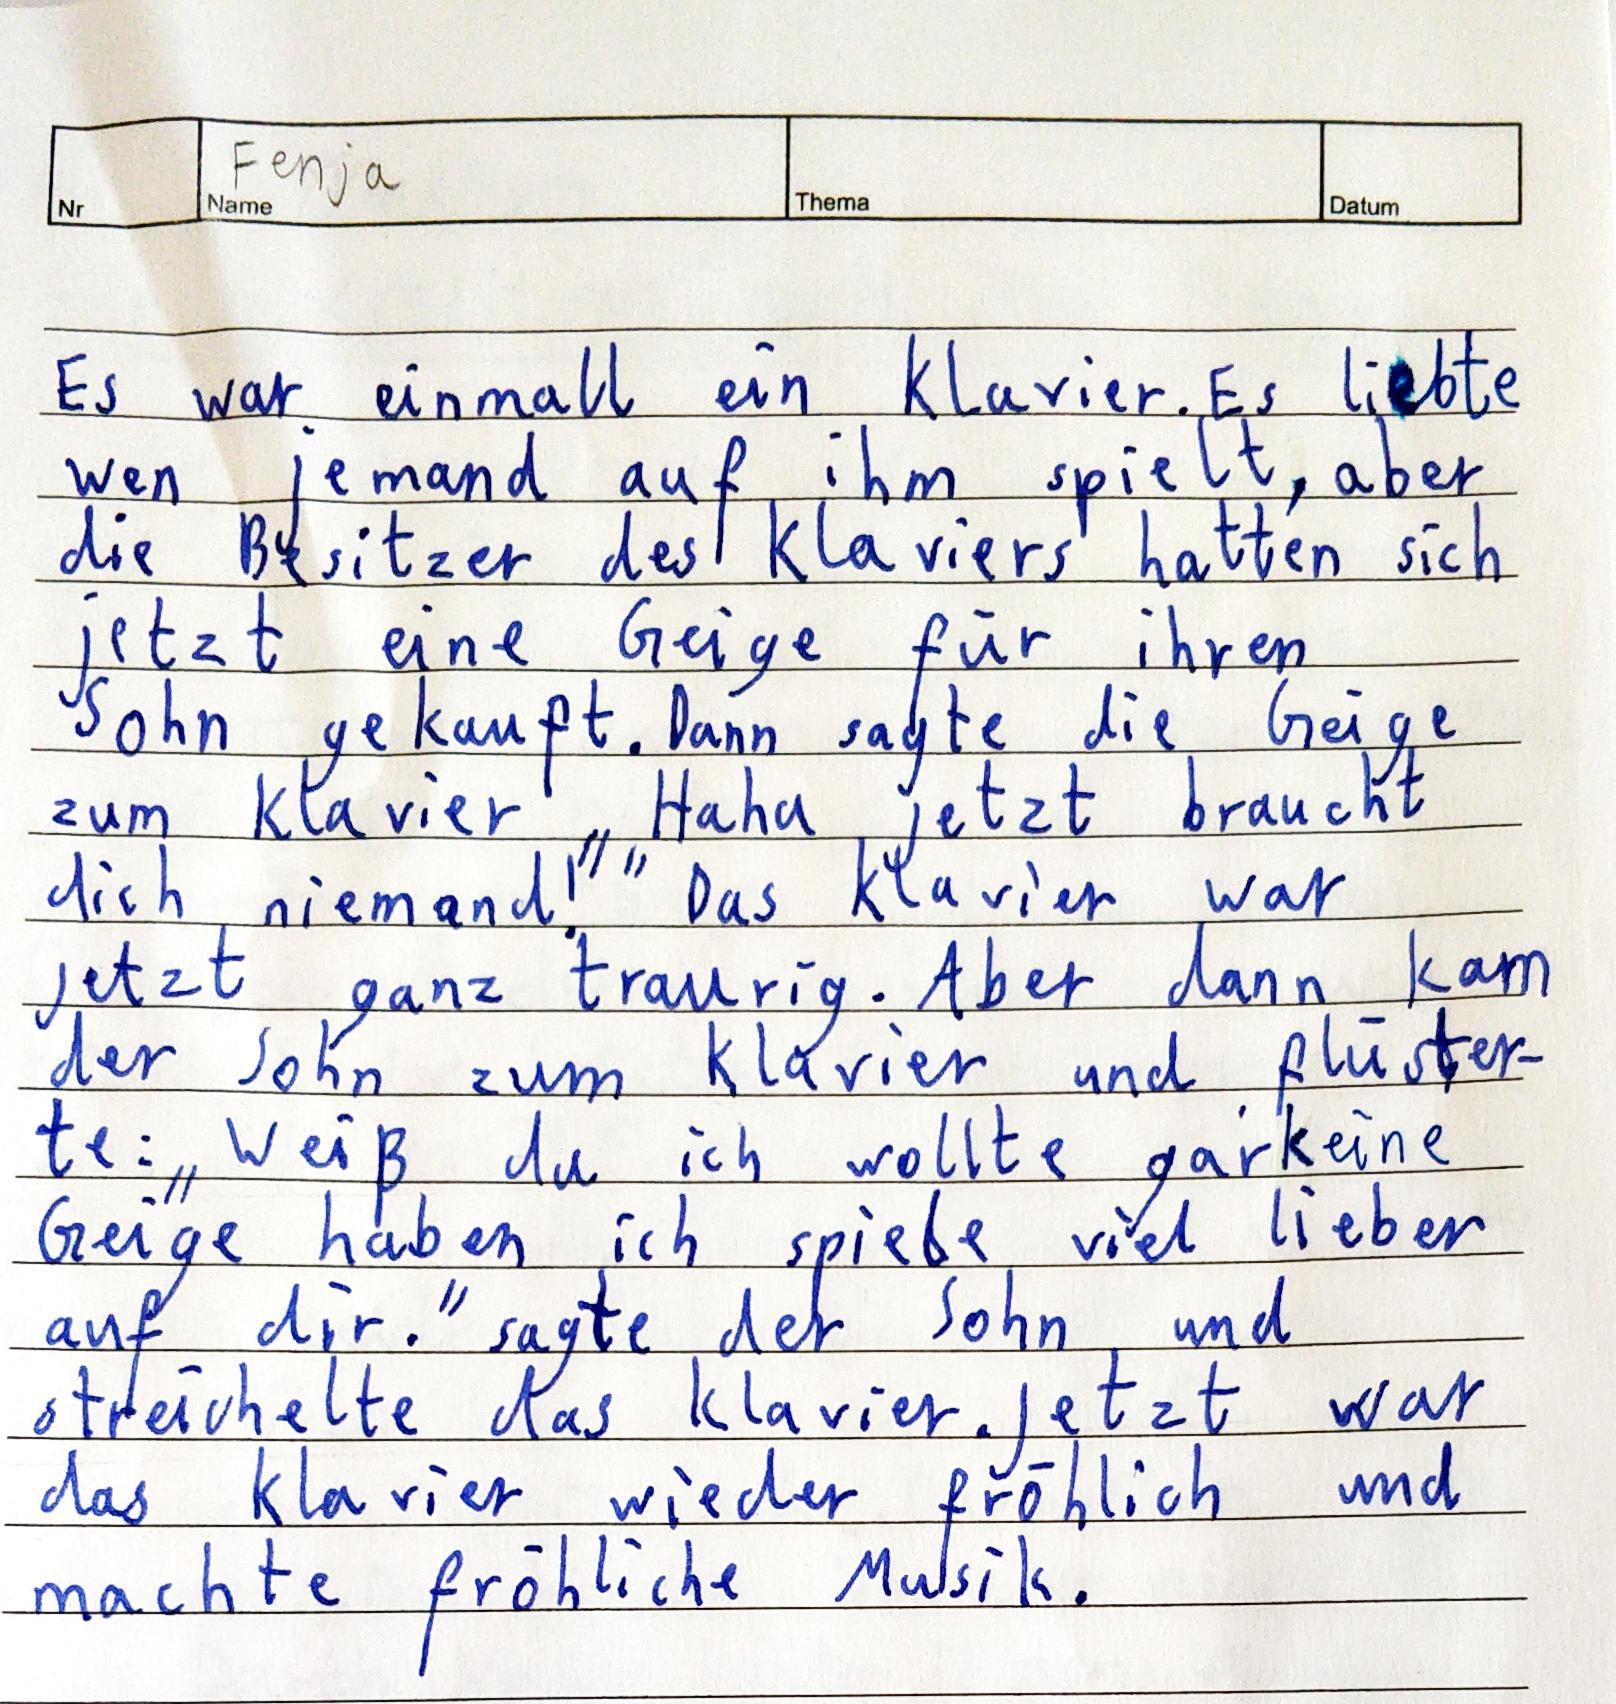 Fenja
Nr Name Thema Datum
Es war einmall ein Klavier. Es liebte
wen jemand auf ihm spielt, aber
die Besitzer des Klaviers hatten sich
jetzt eine Geige für ihren
Sohn gekauft. Dann sagte die Geige
zum Klavier „Haha jetzt braucht
dich niemand!"" Das Klavier war
jetzt ganz traurig. Aber dann kam
der Sohn zum Klavier und flüster-
te: „Weiß du ich wollte garkeine
Geige haben ich spiele viel lieber
auf dir." sagte der Sohn und
streichelte das Klavier. Jetzt war
das Klavier wieder fröhlich und
machte fröhliche Musik.